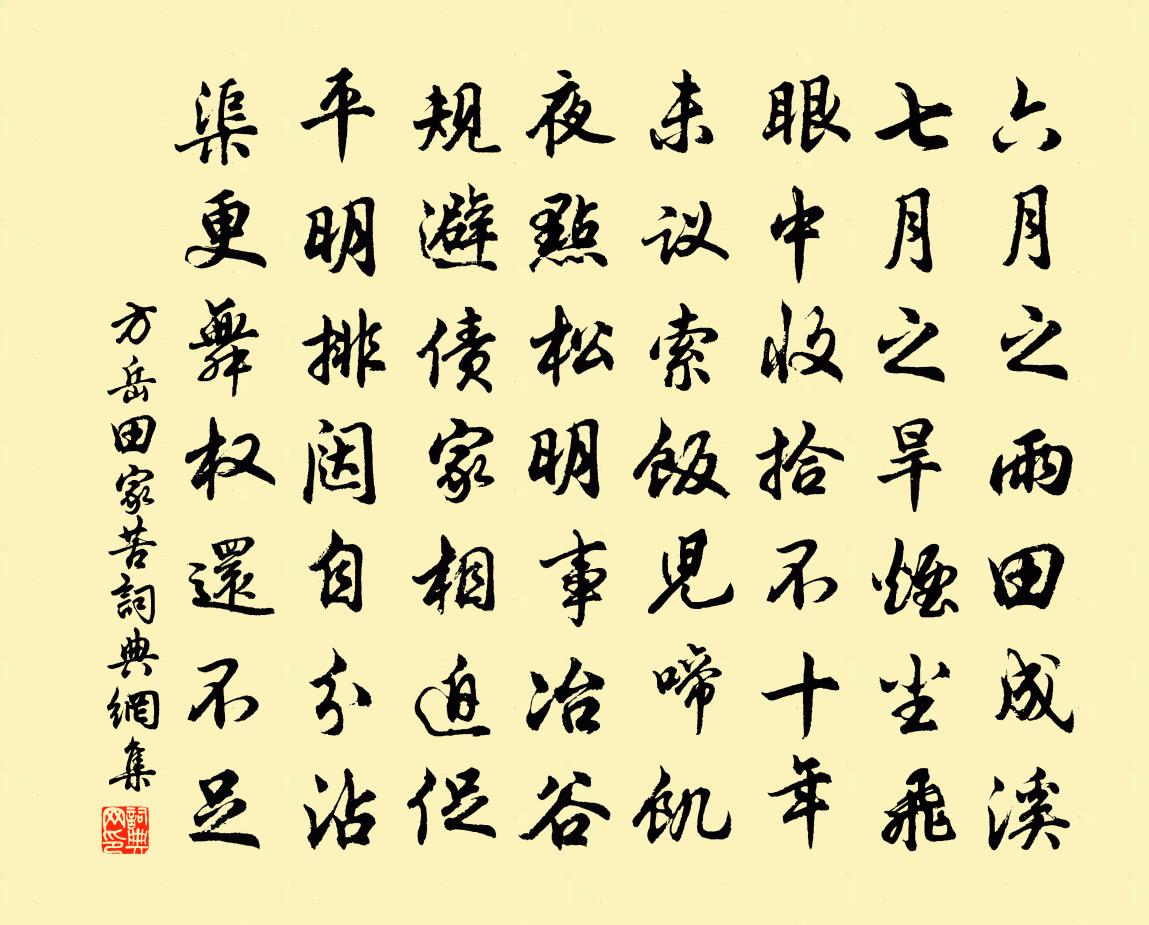 六月之雨田成溪
七月之旱煙尘飛
眼中收拾不十年
未议索飯児啼飢
夜點松明事冶谷
規避债家相迫促
平明排闼自分沾
渠更舞权還不足
方岳田家苦詞典網集
詞典网印